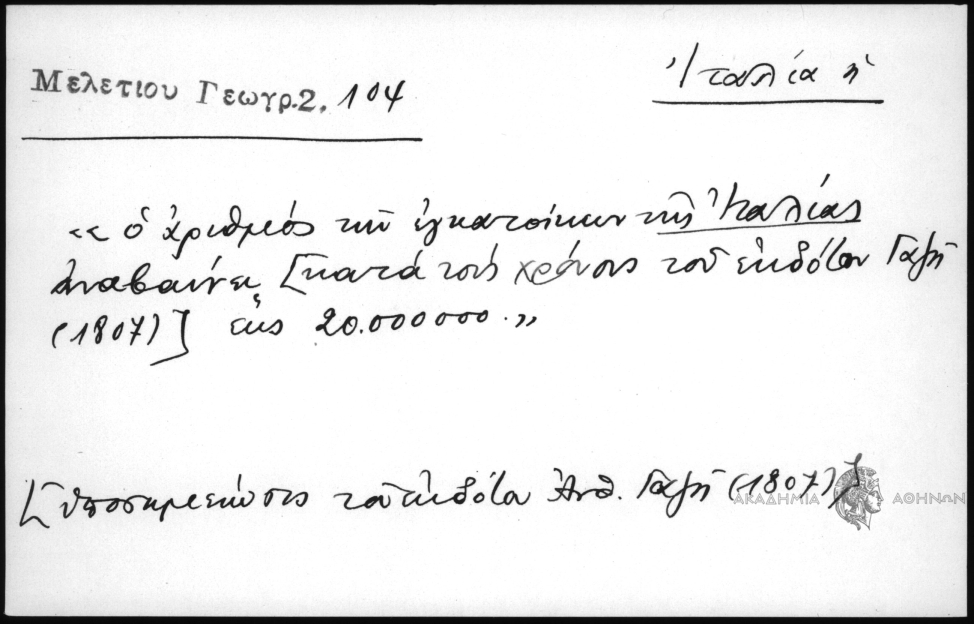 Μελετίου Γεωγρ.2. 104
Ἰταλία ἡ
«ὁ ἀριθμὸς τῶν ἐγκατοίκων τῆς Ἰταλίας
ἀναβαίνει [κατὰ τοὺς χρόνους τοῦ ἐκδότου Γαζῆ
(1807)] εἰς 20.000000.»
[ὑποσημείωσις τοῦ ἐκδότου Ἀνθ. Γαζῆ (1807)]
ΑΚΑΔΗΜΙΑ ΑΘΗΝΩΝ